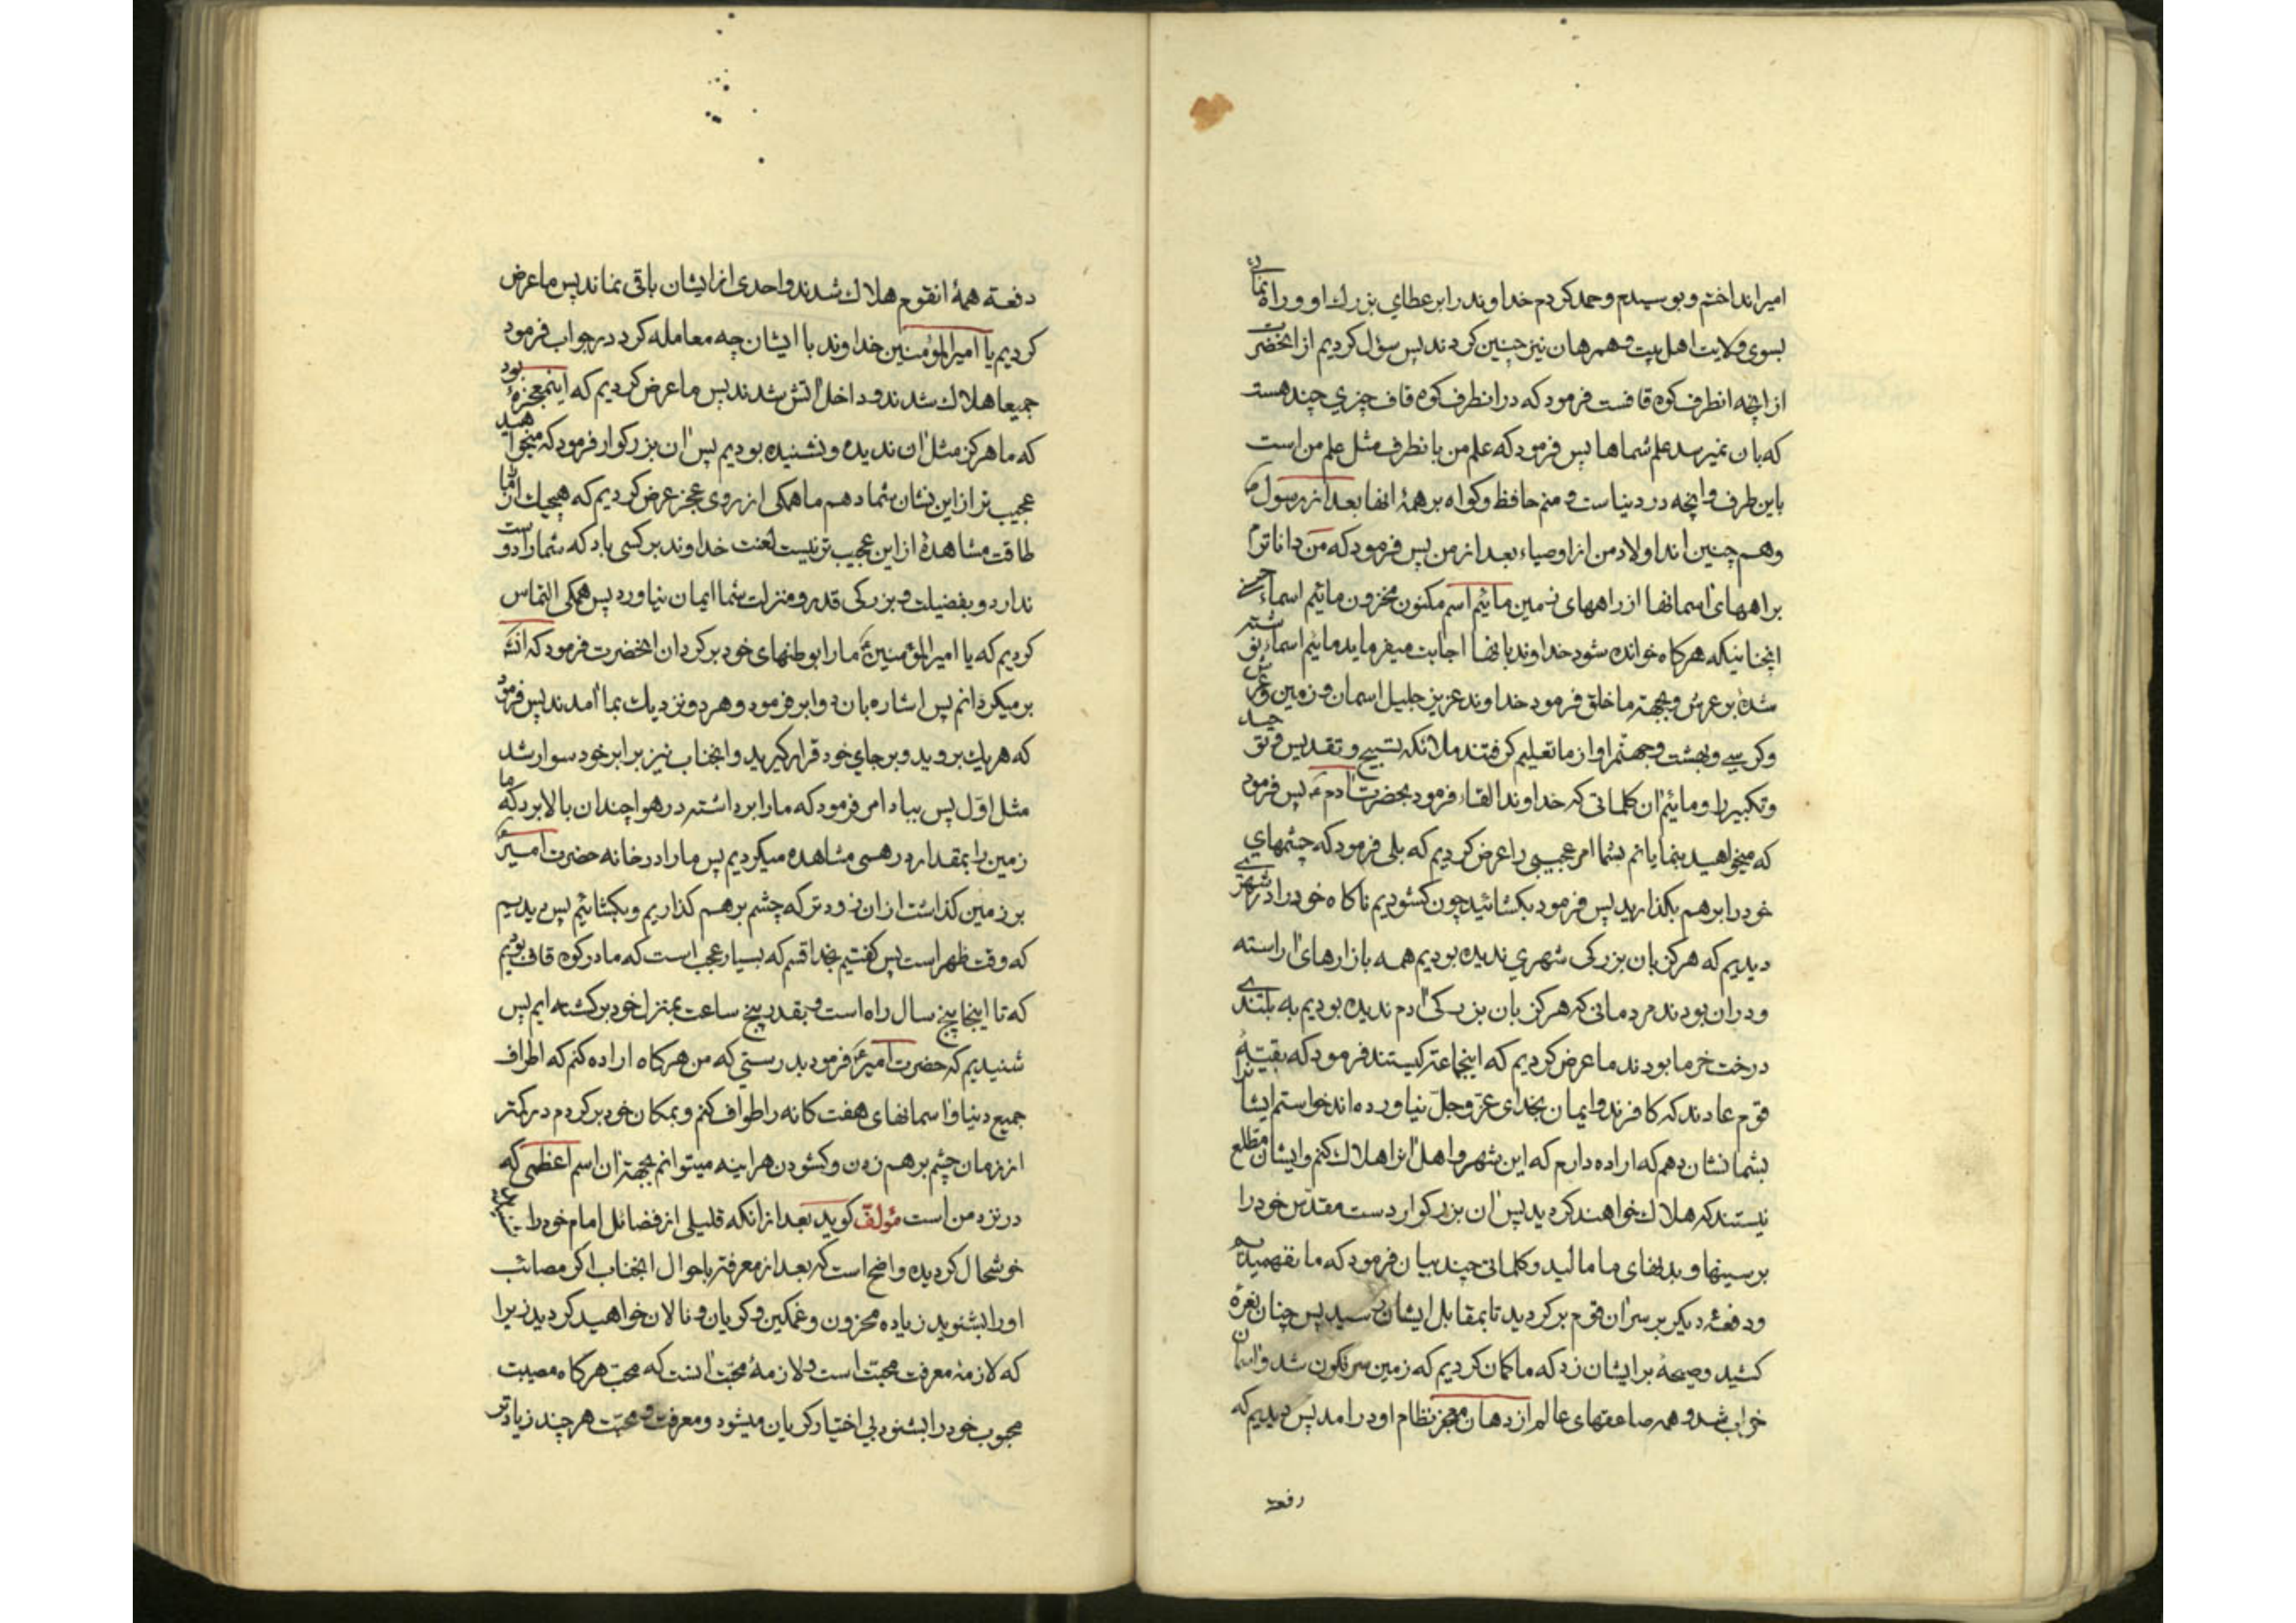 امیر انداختم و بوسیدم و حمد کردم خداوند را بر عطای بزرك او و راه نمائی
بسوی ولایت اهل بیت و همرهان نیز چنین کردند پس سؤال کردیم از انحضرت
از انچه انطرف کوه قافست فرمود که در انطرف کوه قاف چیزی چند هست
که بان نمیرسد علم شماها پس فرمود که علم من بانطرف مثل علم من است
باین طرف و انچه در دنیاست و منم حافظ و کواه بر همهٔ انها بعد از رسول ص
و هم چنین اند اولاد من از اوصیاء بعد از من پس فرمود که من داناترم
براههای اسمانها از راههای زمین مائیم اسم مکنون مخزون مائیم اسماء حسنی
انچنانیکه هرکاه خوانده شود خداوند بانها اجابت میفرماید مائیم اسماء نوشته
شده بر عرش و بجهته ما خلق فرمود خداوند عزیز جلیل اسمان و زمین و عرش
و کرسی و بهشت و جهنم را و از ما تعلیم کرفتند ملائکه تسبیح و تقدیس و توحید
و تکبیر را و مائیم ان کلماتی که خداوند القاء فرمود بحضرت ادم ع پس فرمود
که میخواهید بنمایانم بشما امر عجیبی را عرض کردیم که بلی فرمود که چشمهای
خود را برهم بکذارید پس فرمود بکشائید چون کشودیم ناکاه خود را در شهری
دیدیم که هرکز بان بزرکی شهری ندیده بودیم همه بازارهای اراسته
و دران بودند مردمانی که هرکز بان بزرکی ادم ندیده بودیم به بلندی
درخت خرما بودند ما عرض کردیم که اینجماعت کیستند فرمود که بقیهٔ
قوم عادند که کافرند و ایمان بخدای عز و جل نیاورده اند خواستم ایشانرا
بشما نشان دهم که اراده دارم که این شهر و اهل انرا هلاك کنم و ایشان مطلع
نیستند که هلاك خواهند کردید پس ان بزرکوار دست مقدس خود را
بر سینها و بدنهای ما مالید و کلماتی چند بیان فرمود که ما نفهمیدیم
و دفعهٔ دیکر بر سر ان قوم برکردید تا بمقابل ایشان رسید پس چنان نعرهٔ
کشید و صیحهٔ بر ایشان زد که ما کمان کردیم که زمین سرنکون شد و اسمان
خراب شد و همه صاعقهای عالم از دهان معجز نظام او در امد پس دیدیم که
دفعة
دفعة همهٔ انقوم هلاك شدند و احدی از ایشان باقی نماند پس ما عرض
کردیم یا امیرالمؤمنین خداوند با ایشان چه معامله کرد در جواب فرمود
جمیعا هلاك شدند و داخل اتش شدند پس ما عرض کردیم که این معجزهٔ بود
که ما هرکز مثل ان ندیده و نشنیده بودیم پس ان بزرکوار فرمود که میخواهید
عجیب تر از این نشان شما دهم ما همکی از روی عجز عرض کردیم که هیچیك از ما را
طاقت مشاهدهٔ از این عجیب تر نیست لعنت خداوند بر کسی باد که شما را دوست
ندارد و بفضیلت و بزرکی قدر و منزلت شما ایمان نیاورد پس همکی التماس
کردیم که یا امیرالمؤمنین ع ما را بوطنهای خود برکردان انحضرت فرمود که انشاءالله
بر میکردانم پس اشاره بان دو ابر فرمود و هر دو نزدیك بما امدند پس فرمود
که هریك بروید و بر جای خود قرار کیرید و انجناب نیز بر ابر خود سوار شد
مثل اول پس بباد امر فرمود که ما را برداشته در هوا چندان بالا برد که ما
زمین را بمقدار درهمی مشاهده میکردیم پس ما را در خانه حضرت امیر ع
بر زمین کذاشت از ان زودتر که چشم برهم کذاریم و بکشائیم پس دیدیم
که وقت ظهر است پس کفتیم بخدا قسم که بسیار عجب است که ما در کوه قاف بودیم
که تا اینجا پنج سال راه است و بقدر پنج ساعت بمنزل خود برکشته ایم پس
شنیدیم که حضرت امیر ع فرمود بدرستی که من هرکاه اراده کنم که اطراف
جمیع دنیا و اسمانهای هفت کانه را طواف کنم و بمکان خود برکردم در کمتر
از زمان چشم برهم زدن و کشودن هراینه میتوانم بجهة ان اسم اعظمی که
در نزد من است مؤلف کوید بعد از انکه قلیلی از فضائل امام خود را
خوشحال کردیده واضح است که بعد از معرفة باحوال انجناب اکر مصائب
او را بشنوید زیاده محزون و غمکین و کریان و نالان خواهید کردید زیرا
که لازمهٔ معرفت محبت است و لازمهٔ محبت انست که محب هرکاه مصیبت
محبوب خود را بشنود بی اختیار کریان میشود و معرفت و محبت هر چند زیادتر